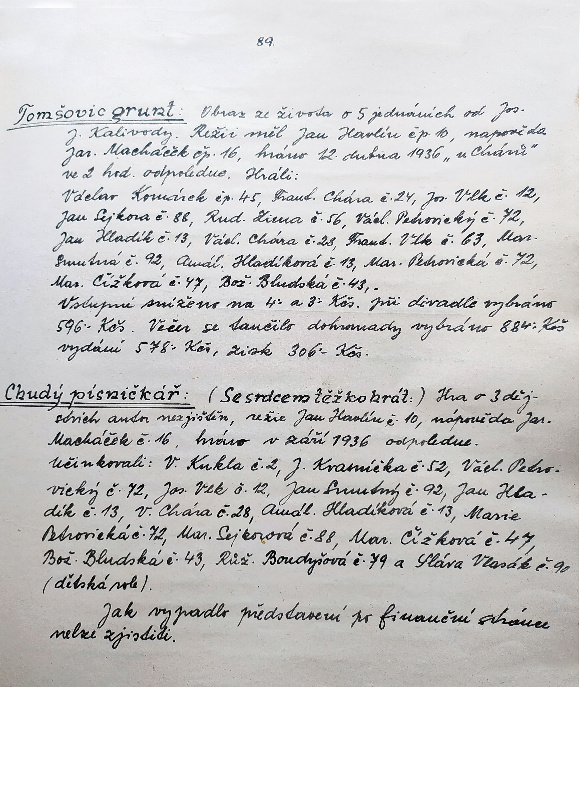 89.
Tomšovic grunt: Obraz ze života o 5 jednáních od Jos.
J. Kalivody. Režii měl Jan Havlín čp. 10, napověda
Jar. Macháček čp. 16, hráno 12. dubna 1936 „u Chárů"
ve 2 hod. odpoledne. Hráli:
Václav Komárek čp. 45, Frant. Chára č. 24, Jos. Vlk č. 12,
Jan Sejkora č. 88, Rud. Zima č. 56, Václ. Petrovický č. 72,
Jan Hladík č. 13, Václ. Chára č. 28, Frant. Vlk č. 63, Mar.
Smutná č. 92, Amál. Hladíková č. 13, Mar. Petrovická č. 72,
Mar. Čížková č. 47, Bož. Bludská č. 43,.
Vstupné sníženo na 4.- a 3.- Kčs. při divadle vybráno
596.- Kčs. Večer se tančilo dohromady vybráno 884.- Kčs
vydání 578.- Kčs, zisk 306.- Kčs.
Chudý písničkář: (Se srdcem těžko hrát.) Hra o 3 děj-
stvích autor nezjištěn, režie Jan Havlín č. 10, nápověda Jar.
Macháček č. 16, hráno v září 1936 odpoledne.
Účinkovali: V. Kukla č. 2, J. Kvasnička č. 52, Václ. Petro-
vický č. 72, Jos. Vlk č. 12, Jan Smutný č. 92, Jan Hla-
dík č. 13, V. Chára č. 28, Amál. Hladíková č. 13, Marie
Petrovická č. 72, Mar. Sejkorová č. 88, Mar. Čížková č. 47,
Bož. Bludská č. 43, Růž. Boudyšová č. 79 a Sláva Vlasák č. 90
(dětská role).
Jak vypadlo představení po finanční stránce
nelze zjistiti.